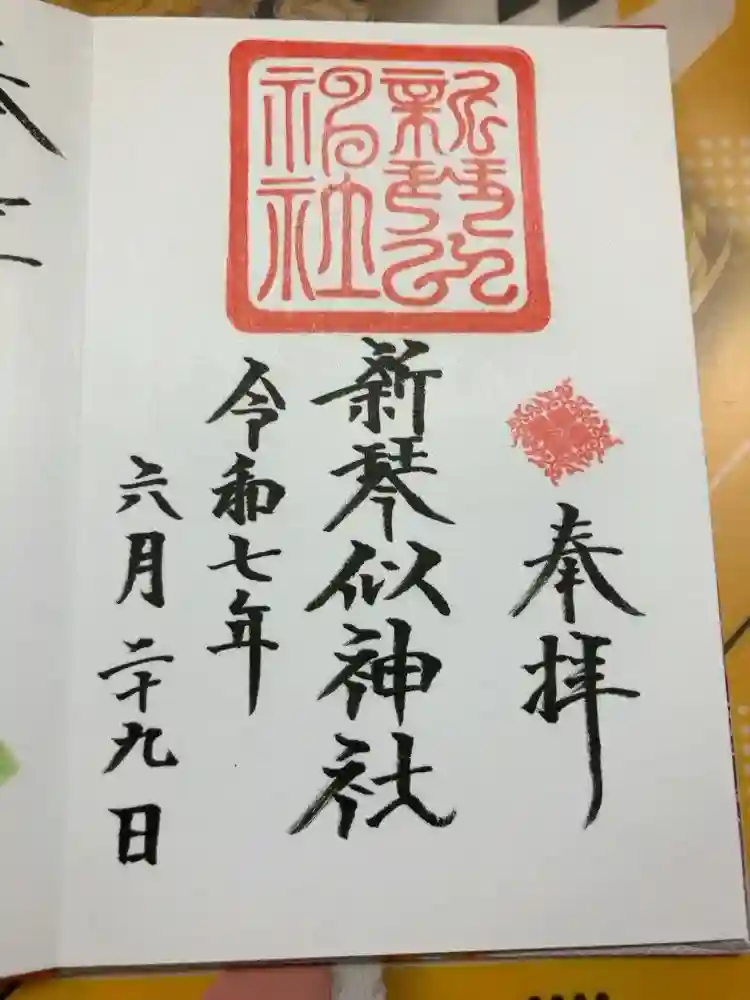 奉拝
新琴似神社
新琴似
神社
令和七年
六月二十九日